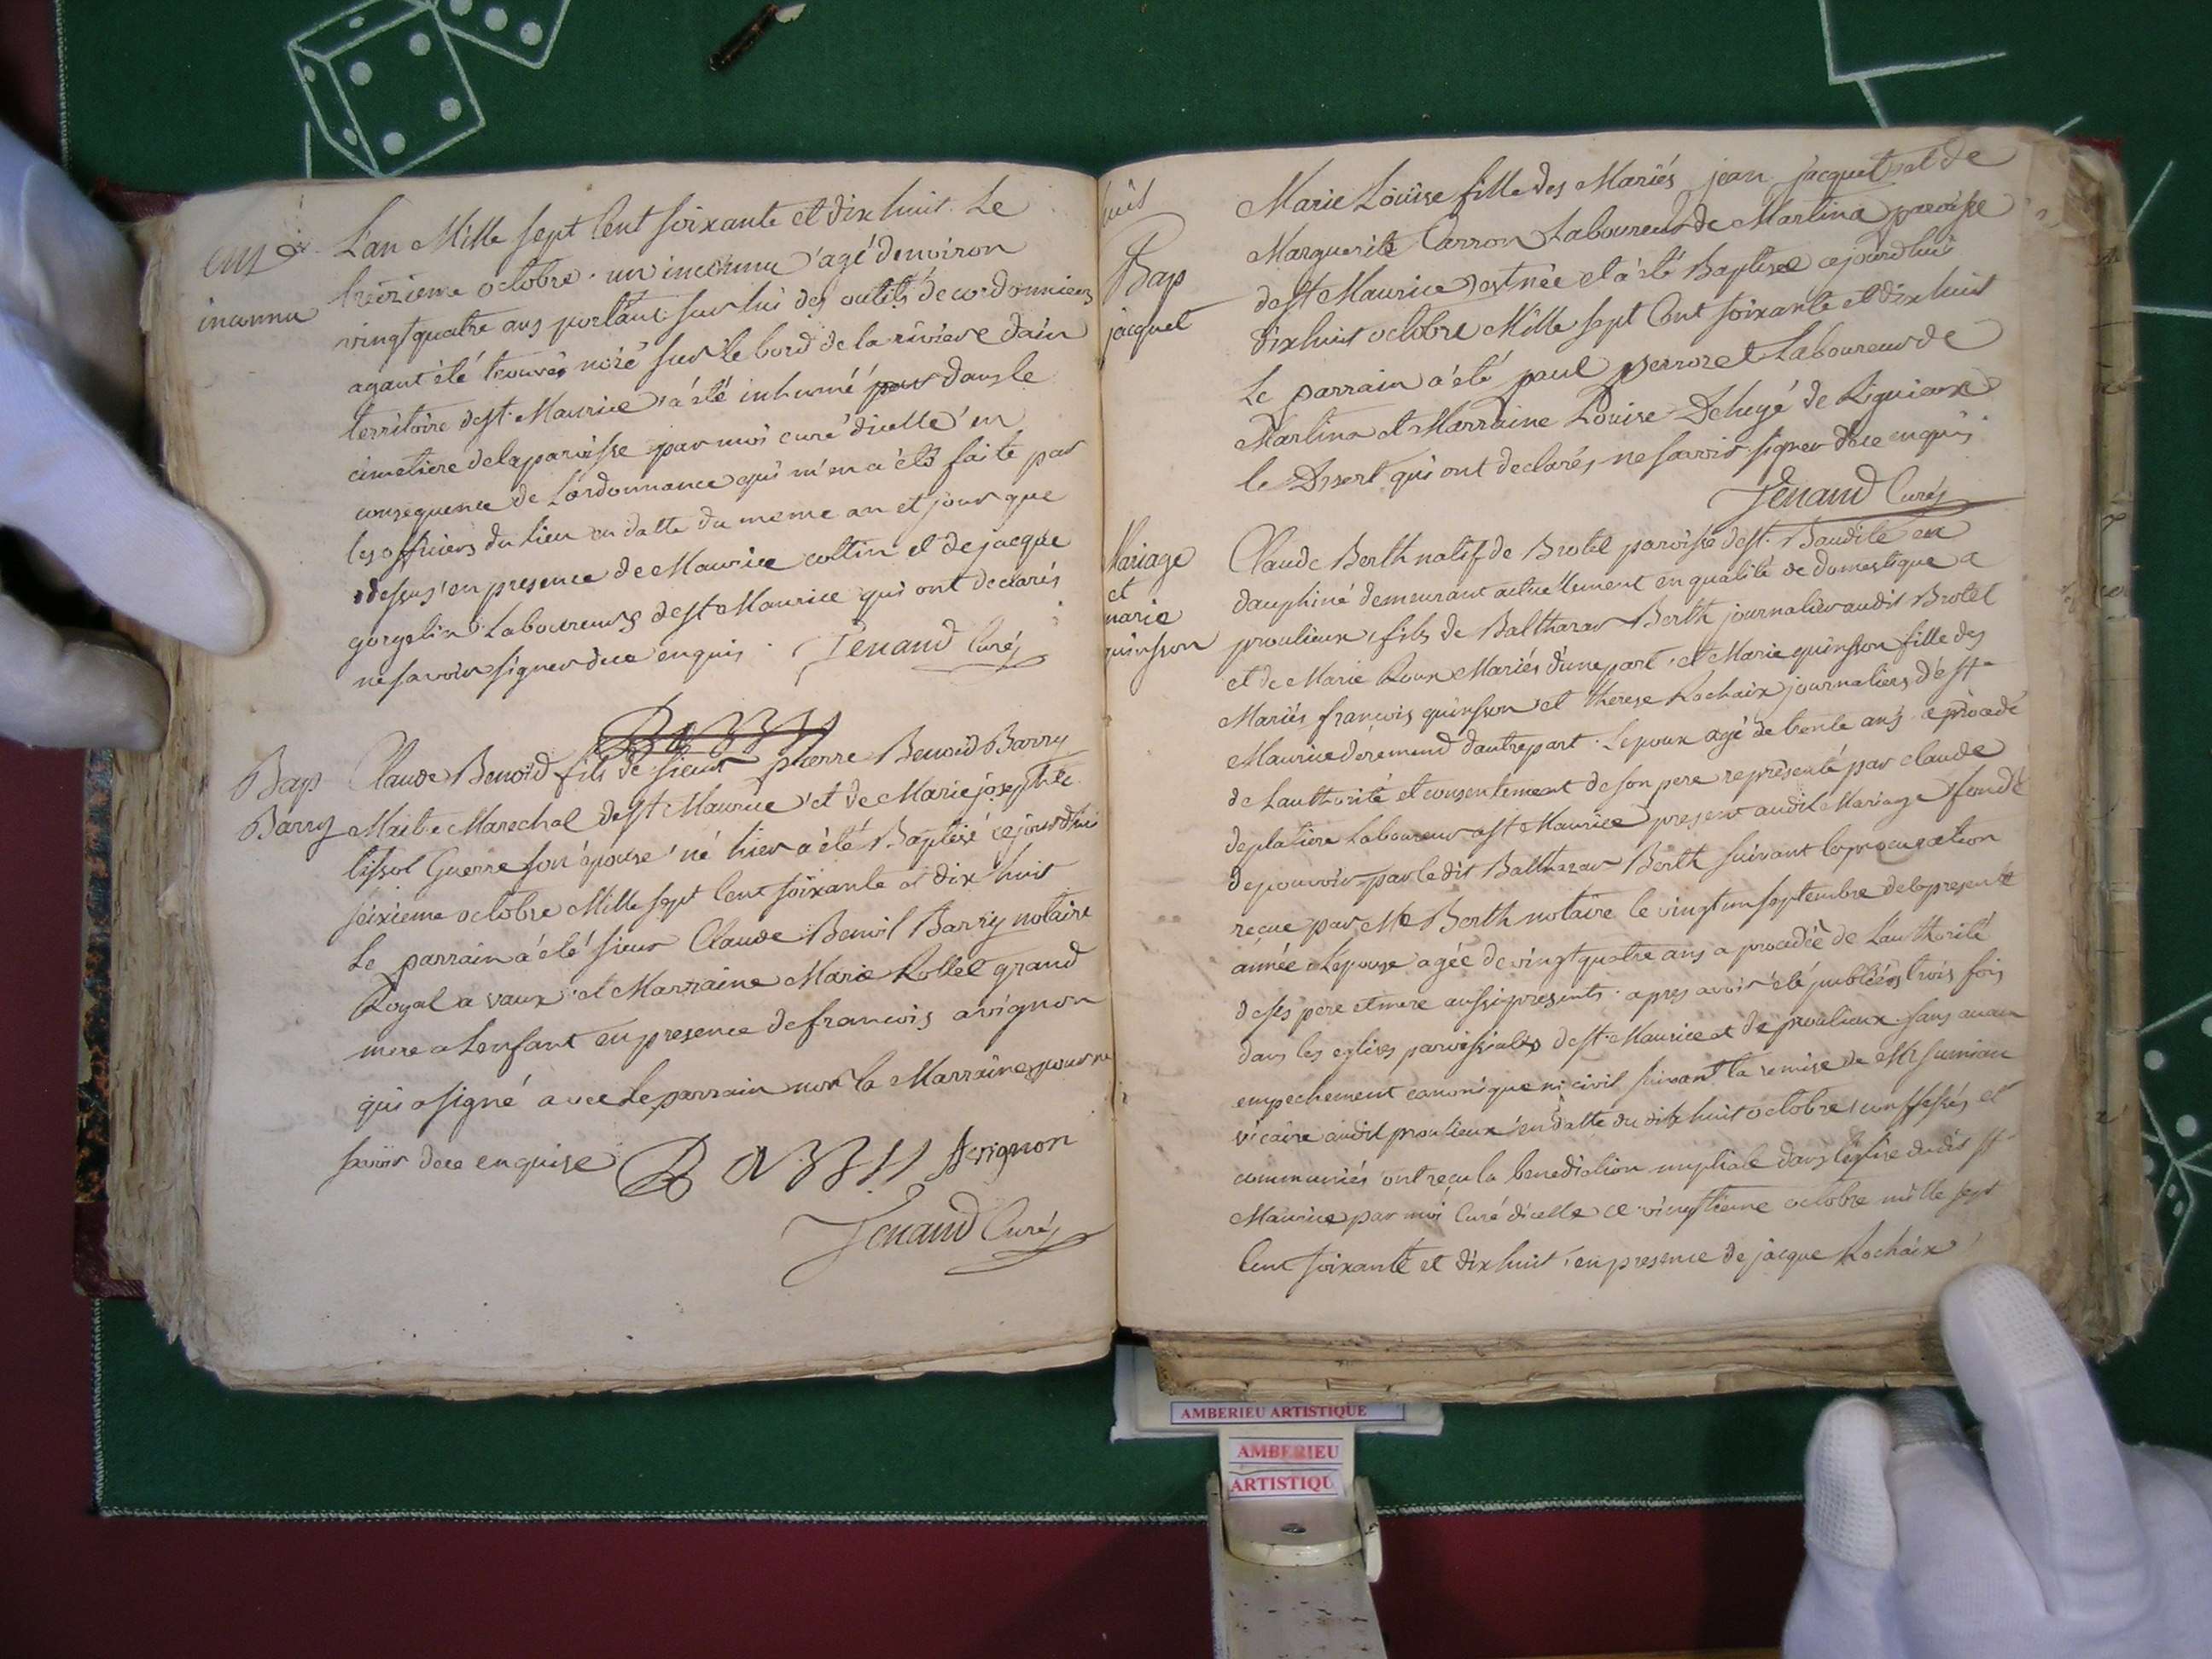 inconnu
L'an Mille sept Cent soixante et dix huit. Le
treizieme octobre. un inconnu agé denviron
vingt quatre ans portant sur lui des outils de cordonniers
ayant été trouvé noié sur le bord de la riviere dain
territoire de st. Maurice a été inhumé dans le
cimetiere de la paroisse par moi curé dicelle en
consequence de Lordonnance qui m'en a été faite par
les officiers du lieu en datte du meme an et jour que
dessus en presence de Maurice cottin et de jacque
gorgelin Laboureurs de st Maurice qui ont declarés
ne savoir signer de ce enquis. Jenand Curé
Barry
Bap
Barry
Claude Benoid fils de sieur pierre Benoid Barry
Maitre Marechal de st Maurice et de Marie josephte
tissot Guerre son épouse né hier a été Baptisé cejourdhui
seizieme octobre Mille sept Cent soixante et dix huit
Le parrain a été sieur Claude Benoit Barry notaire
Royal a vaux et Marraine Marie Rollet grand
mere a Lenfant en presence de francois avignon
qui a signé avec Le parrain non la Marraine pour ne
savoir de ce enquise Barry Avignon
Jenand Curé
huit
Bap
jacquet
Marie Loüise fille des Mariés jean jacquet et de
Marguerite Carron Laboureurs de Martina paroisse
de st Maurice est née et a été Baptisée cejourdhui
dixhuit octobre Mille sept Cent soixante et dix huit
Le parrain a été paul perrozet Laboureur de
Martina et Marraine Louise de Liguieux
le Desert qui ont declarés ne savoir signer de ce enquis
Jenand Curé
Mariage
et
marie
quinsson
Claude Berth natif de Brotel paroisse de st. Baudile en
dauphiné demeurant actuellement en qualité de domestique a
proulieux, fils de Balthazar Berth journalier audit Brotel
et de Marie Roux Mariés d'une part, et Marie quinsson fille des
Mariés francois quinsson et therese Rochaix journaliers de st
Maurice deremend dautre part. Lepoux agé de trente ans a procedé
de Lauthorité et consentement de son pere représenté par claude
deplatiere Laboureur a st Maurice present audit Mariage fondé
de pouvoir par le dit Balthazar Berth suivant la procuration
reçue par Me Berth notaire le vingt un septembre de la presente
année Lepouse agée de vingt quatre ans a procedée de Lauthorité
de ses pere et mere aussi presents. apres avoir été publiés trois fois
dans les eglises paroissiales de st. Maurice et de proulieux. sans aucun
empechement canonique ni civil suivant la remise de Mr sumian
vicaire audit proulieux en datte du dix huit octobre, confessés et
communiés ont reçu la benediction nuptiale dans leglise dudit st
Maurice par moi Curé dicelle ce vingtieme octobre mille sept
Cent soixante et dix huit, en presence de jacque Rochaix
AMBERIEU ARTISTIQUE
AMBERIEU
ARTISTIQU